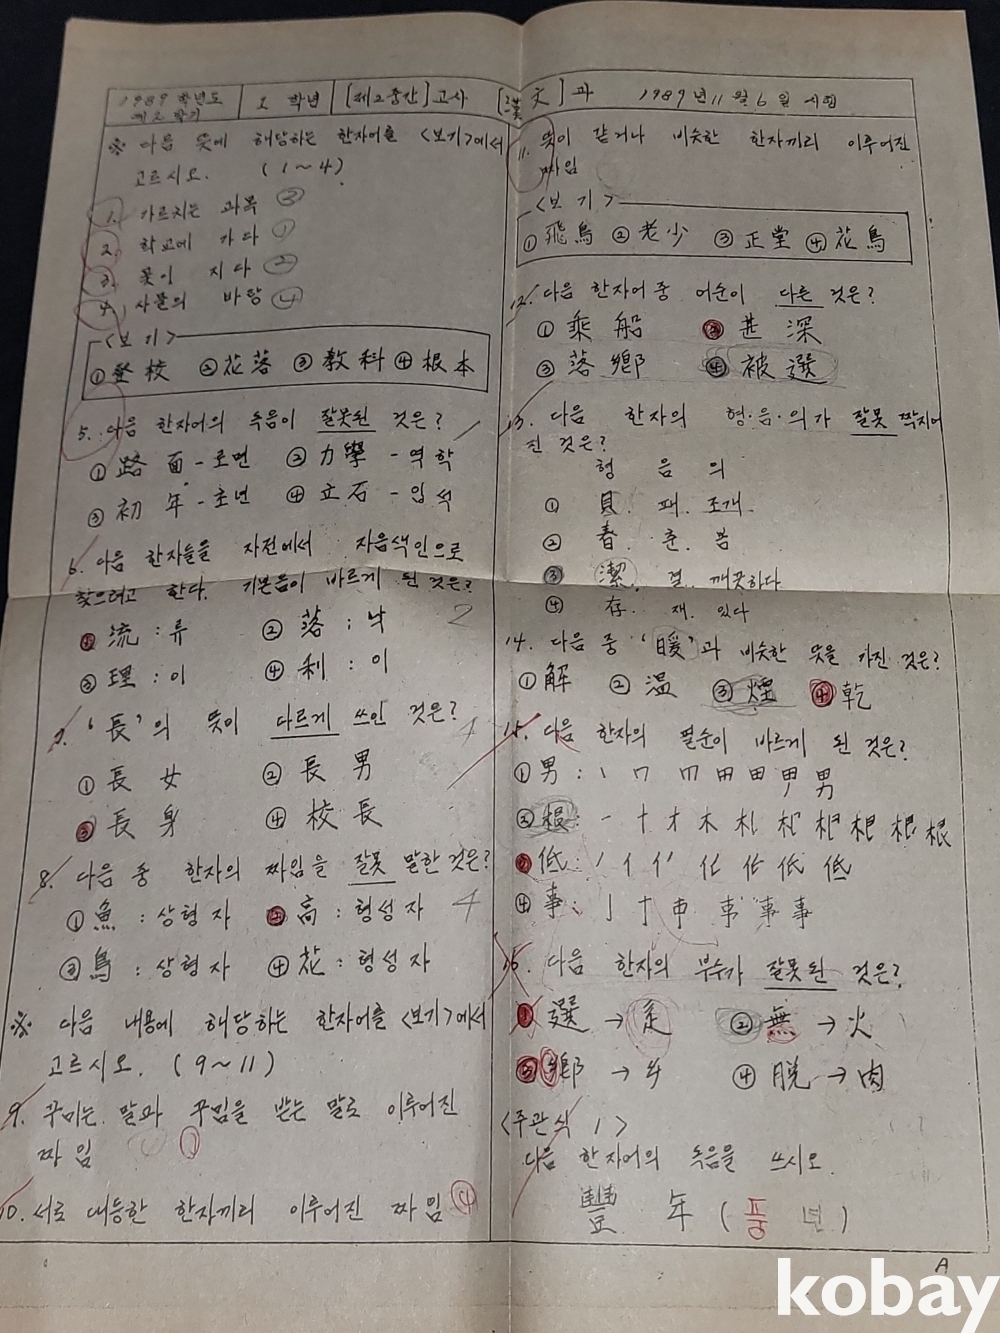 1989 학년도
제 2 학기
1 학년
[제2중간] 고사
[漢文] 과
1989년 11월 6일 시험
※ 다음 뜻에 해당하는 한자어를 <보기>에서
고르시오. (1~4)
1. 가르치는 과목 ③
2. 학교에 가다 ①
3. 꽃이 지다 ②
4. 사물의 바탕 ④
<보기>
① 登校 ② 花落 ③ 敎科 ④ 根本
5. 다음 한자어의 독음이 잘못된 것은?
① 路面 - 로면 ② 力學 - 역학
③ 初年 - 초년 ④ 立石 - 입석
6. 다음 한자들을 자전에서 자음색인으로
찾으려고 한다. 기본음이 바르게 된 것은?
① 流 : 류 ② 落 : 낙
2
③ 理 : 이 ④ 利 : 이
7. '長'의 뜻이 다르게 쓰인 것은?
4
① 長女 ② 長男
③ 長身 ④ 校長
8. 다음 중 한자의 짜임을 잘못 말한 것은?
① 魚 : 상형자 ② 高 : 형성자
4
③ 鳥 : 상형자 ④ 花 : 형성자
※ 다음 내용에 해당하는 한자어를 <보기>에서
고르시오. (9~11)
9. 꾸미는 말과 꾸밈을 받는 말로 이루어진
짜임 ①
10. 서로 대등한 한자끼리 이루어진 짜임 ④
11. 뜻이 같거나 비슷한 한자끼리 이루어진
짜임
<보기>
① 飛鳥 ② 老少 ③ 正堂 ④ 花鳥
12. 다음 한자어 중 어순이 다른 것은?
① 乘船 ② 甚深
③ 落鄕 ④ 被選
13. 다음 한자의 형·음·의가 잘못 짝지어
진 것은?
형 음 의
① 貝. 패. 조개.
② 春. 춘. 봄
③ 潔. 결. 깨끗하다.
④ 存. 재. 있다
14. 다음 중 '暖'과 비슷한 뜻을 가진 것은?
① 解 ② 溫 ③ 煙 ④ 乾
15. 다음 한자의 필순이 바르게 된 것은?
① 男 :
② 根 :
③ 低 :
④ 事 :
16. 다음 한자의 부수가 잘못된 것은?
① 選 → 辵 ② 無 → 火
③ 鄕 → 乡 ④ 脫 → 肉
<주관식 1>
다음 한자어의 독음을 쓰시오.
豐年 (풍년)
A
kobay